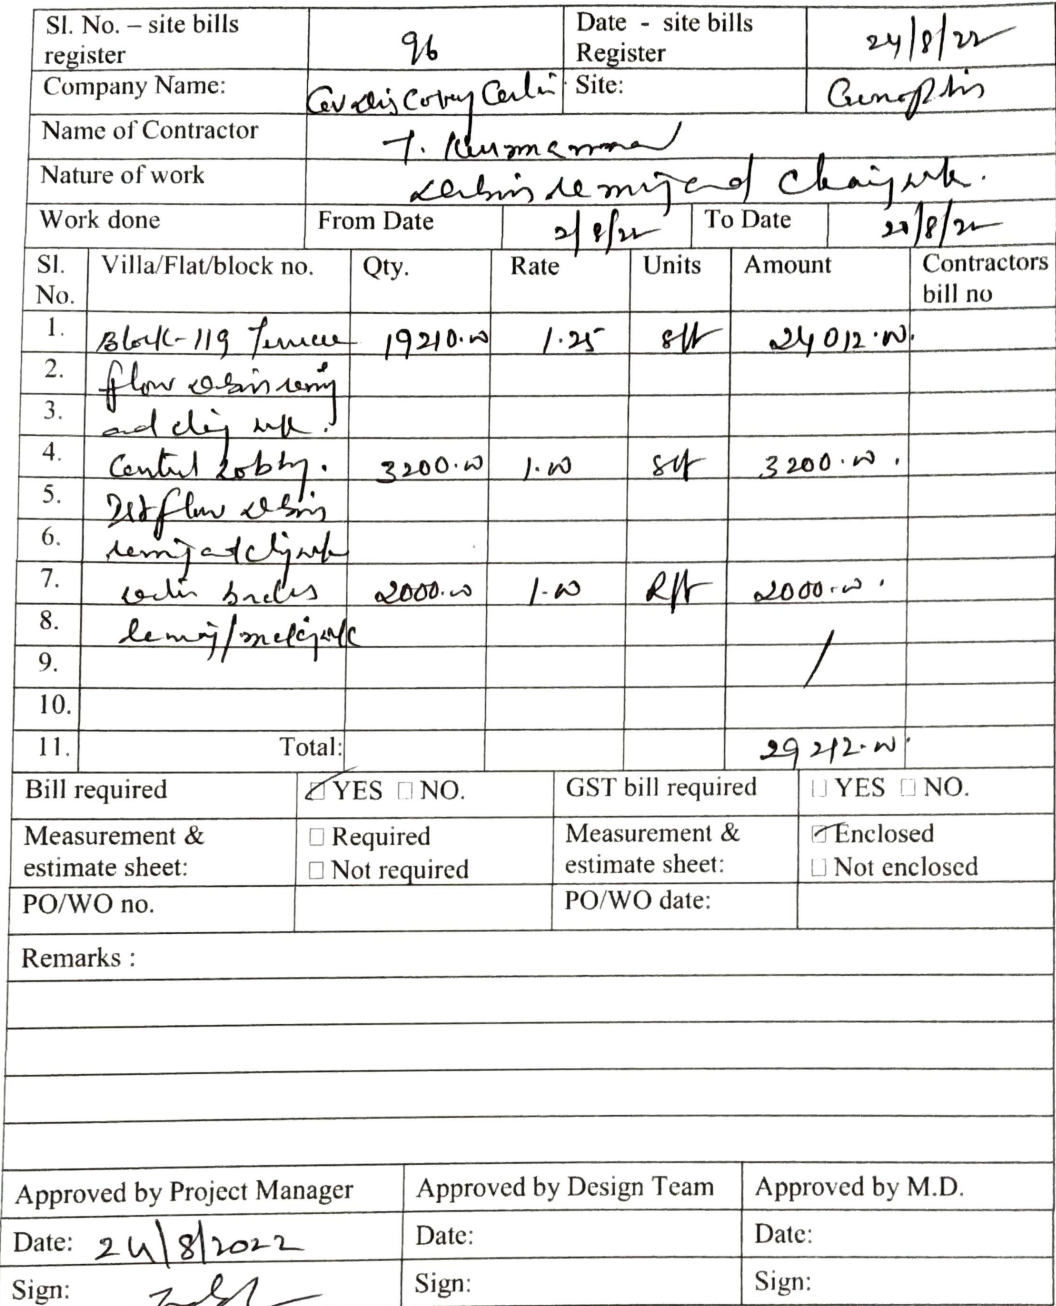 Sl. No. – site bills register 96 Date - site bills Register 24/8/22
Company Name: Site: Genopolis
Name of Contractor T. Kurmanna
Nature of work Debris removing and work.
Work done From Date 2/8/22 To Date 20/8/22
Sl. No. Villa/Flat/block no. Qty. Rate Units Amount Contractors bill no
1. Block-119 Terrace 19210.00 1.25 sft 24012.00.
2. floor debris
3. and
4. Central Lobby. 3200.00 1.00 sft 3200.00.
5. floor debris
6. and
7. 2000.00 1.00 Rft 2000.00.
8.
9. /
10.
11. Total: 29212.00.
Bill required ☑ YES ☐ NO. GST bill required ☐ YES ☐ NO.
Measurement & estimate sheet: ☐ Required ☐ Not required Measurement & estimate sheet: ☑ Enclosed ☐ Not enclosed
PO/WO no. PO/WO date:
Remarks :
Approved by Project Manager Approved by Design Team Approved by M.D.
Date: 24/8/2022 Date: Date:
Sign: Sign: Sign: